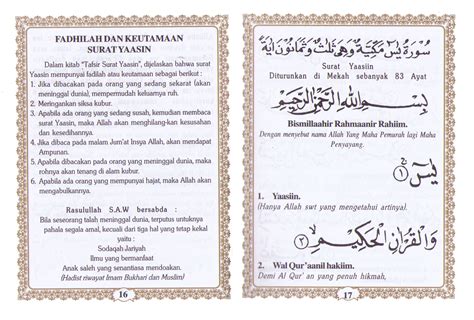 FADHILAH DAN KEUTAMAAN
SURAT YAASIN
Dalam kitab "Tafsir Surat Yaasin", dijelaskan bahwa surat
Yaasin mempunyai fadilah atau keutamaan sebagai berikut :
1. Jika dibacakan pada orang yang sedang sekarat (akan
meninggal dunia), mempermudah keluarnya ruh.
2. Meringankan siksa kubur.
3. Apabila ada orang yang sedang susah, kemudian membaca
surat Yaasin, maka Allah akan menghilang-kan kesusahan
dan kesedihannya.
4. Jika dibaca pada malam Jum'at Insya Allah, akan mendapat
Ampunan.
5. Apabila dibacakan pada orang yang meninggal dunia, maka
rohnya akan tenang di alam kubur.
6. Apabila ada orang yang mempunyai hajat, maka Allah akan
mengabulkannya.
Rasulullah S.A.W bersabda :
Bila seseorang telah meninggal dunia, terputus untuknya
pahala segala amal, kecuali dari tiga hal yang tetap kekal
yaitu :
Sodaqah Jariyah
Ilmu yang bermanfaat
Anak saleh yang senantiasa mendoakan.
(Hadist riwayat Imam Bukhari dan Muslim)
16
سُوْرَةُ يٰسٓ مَكِّيَّةٌ وَهِيَ ثَلٰثٌ وَثَمَانُوْنَ اٰيَةً
Surat Yaasiin
Diturunkan di Mekah sebanyak 83 Ayat
بِسْمِ اللهِ الرَّحْمٰنِ الرَّحِيْمِ
Bismillaahir Rahmaanir Rahiim.
Dengan menyebut nama Allah Yang Maha Pemurah lagi Maha
Penyayang.
يٰسٓ ۚ ﴿١﴾
1. Yaasiin.
(Hanya Allah swt yang mengetahui artinya).
وَالْقُرْاٰنِ الْحَكِيْمِۙ ﴿٢﴾
2. Wal Qur'aanil hakiim.
Demi Al Qur' an yang penuh hikmah,
17